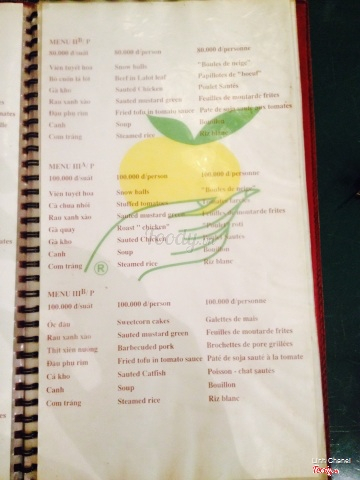 MENU HB/P
80.000 đ/suất 80.000 đ/person 80.000 đ/personne
Viên tuyết hoa Snow balls "Boules de neige"
Bò cuốn lá lốt Beef in Lalot leaf Papillotes de "boeuf"
Gà kho Sauted Chicken Poulet Sautés
Rau xanh xào Sauted mustard green Feuilles de moutarde frites
Đậu phụ rim Fried tofu in tomato sauce Paté de soja sauté aux tomates
Canh Soup Bouillon
Cơm trắng Steamed rice Riz blanc
MENU HA/P
100.000 đ/suất 100.000 đ/person 100.000 đ/personne
Viên tuyết hoa Snow balls "Boules de neige"
Cà chua nhồi Stuffed tomatoes Tomates farcies
Rau xanh xào Sauted mustard green Feuilles de moutarde frites
Gà quay Roast " chicken" "Poulet" roti
Gà kho Sauted Chicken Poulet sautes
Canh Soup Bouillon
Cơm trắng Steamed rice Riz blanc
foody.vn
®
MENU HB/P
100.000 đ/suất 100.000 đ/person 100.000 đ/personne
Ốc đảo Sweetcorn cakes Galettes de maïs
Rau xanh xào Sauted mustard green Feuilles de moutarde frites
Thịt xiên nướng Barbecuded pork Brochettes de porc grillées
Đậu phụ rim Fried tofu in tomato sauce Paté de soja sauté à la tomate
Cá kho Sauted Catfish Poisson - chat sautes
Canh Soup Bouillon
Cơm trắng Steamed rice Riz blanc
Linh Chanel
Foody.vn